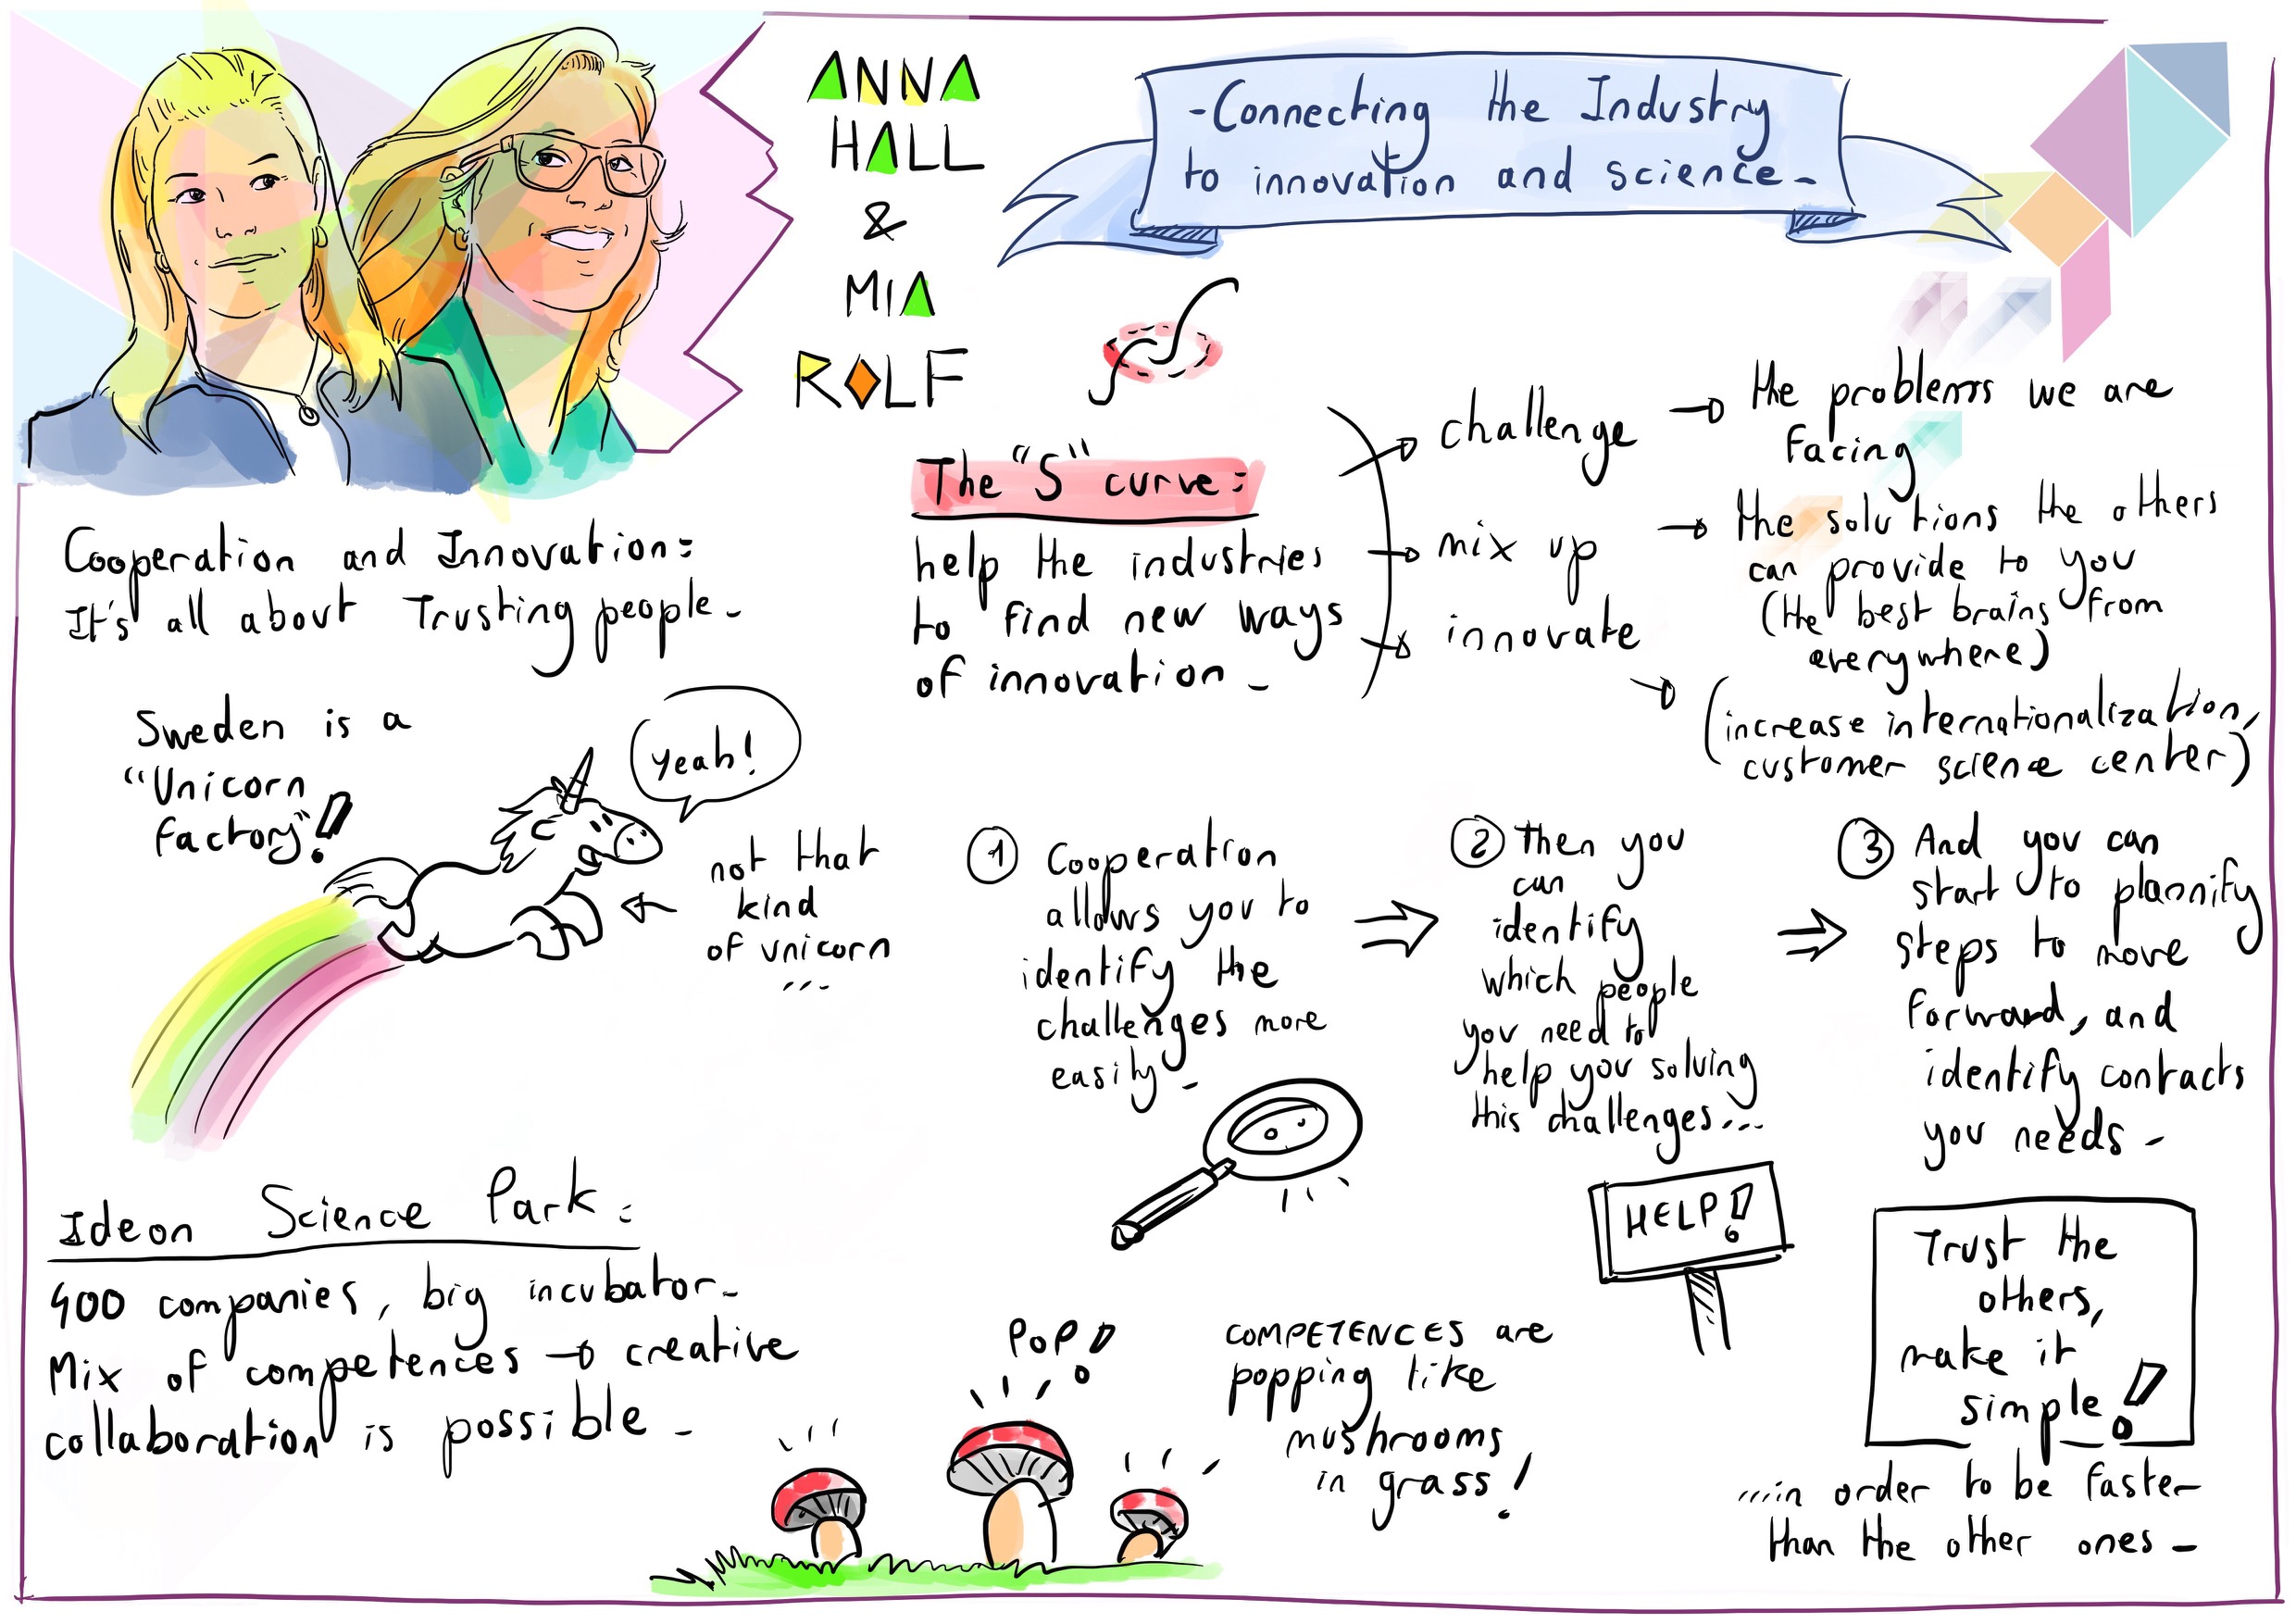 ANNA
HALL
&
MIA
ROLF
-Connecting the Industry
to innovation and science-
Cooperation and Innovation:
It's all about Trusting people-
Sweden is a
"Unicorn
factory"!
yeah!
not that
kind
of unicorn
...
Ideon Science Park:
400 companies, big incubator-
Mix of competences → creative
collaboration is possible-
The "S" curve:
help the industries
to find new ways
of innovation-
→ challenge → the problems we are
facing
→ mix up → the solutions the others
can provide to you
(the best brains from
everywhere)
→ innovate
→ (increase internationalization,
customer science center)
1 Cooperation
allows you to
identify the
challenges more
easily-
2 Then you
can
identify
which people
you need to
help you solving
this challenges...
3 And you can
start to plannify
steps to move
forward, and
identify contacts
you needs-
HELP!
POP!
COMPETENCES are
popping like
mushrooms
in grass!
Trust the
others,
make it
simple!
...in order to be faster
than the other ones-